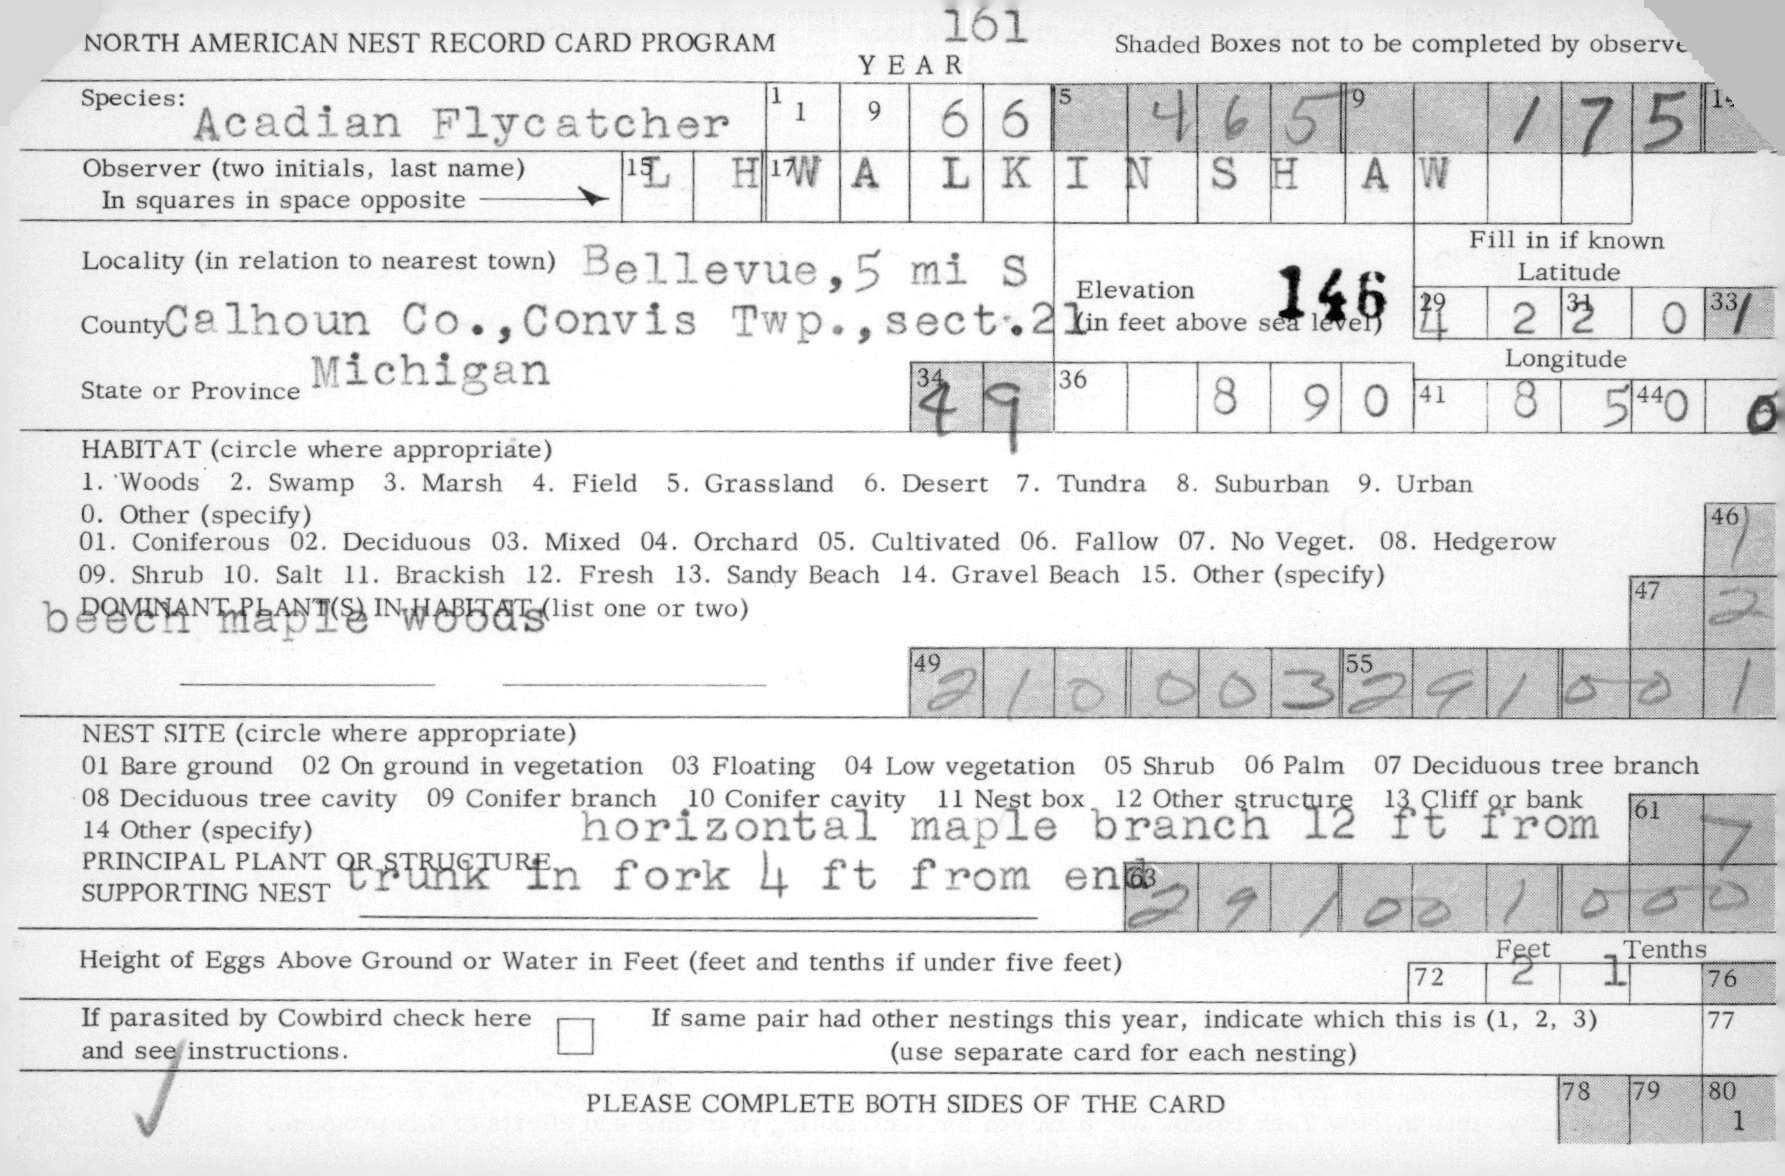 161
NORTH AMERICAN NEST RECORD CARD PROGRAM
YEAR
Shaded Boxes not to be completed by observe
Species: Acadian Flycatcher 1 1 9 6 6 5 4 6 5 9 1 7 5 14
Observer (two initials, last name) 15 L H 17 W A L K I N S H A W
In squares in space opposite
Locality (in relation to nearest town) Bellevue, 5 mi S
Fill in if known
Latitude
County Calhoun Co., Convis Twp., sect. 21
Elevation 146
(in feet above sea level)
29 4 2 31 2 0 33 1
Longitude
State or Province Michigan
34 4 9 36 8 9 0 41 8 5 44 0 0
HABITAT (circle where appropriate)
1. Woods 2. Swamp 3. Marsh 4. Field 5. Grassland 6. Desert 7. Tundra 8. Suburban 9. Urban
0. Other (specify)
46 1
01. Coniferous 02. Deciduous 03. Mixed 04. Orchard 05. Cultivated 06. Fallow 07. No Veget. 08. Hedgerow
09. Shrub 10. Salt 11. Brackish 12. Fresh 13. Sandy Beach 14. Gravel Beach 15. Other (specify)
47 2
DOMINANT PLANT(S) IN HABITAT (list one or two)
beech maple woods
49 2 1 0 0 0 3 55 2 9 1 0 0 1
NEST SITE (circle where appropriate)
01 Bare ground 02 On ground in vegetation 03 Floating 04 Low vegetation 05 Shrub 06 Palm 07 Deciduous tree branch
08 Deciduous tree cavity 09 Conifer branch 10 Conifer cavity 11 Nest box 12 Other structure 13 Cliff or bank
14 Other (specify) horizontal maple branch 12 ft from
61 7
PRINCIPAL PLANT OR STRUCTURE
trunk in fork 4 ft from end
SUPPORTING NEST
63 2 9 1 0 0 1 0 0 0
Height of Eggs Above Ground or Water in Feet (feet and tenths if under five feet)
Feet Tenths
72 2 1 76
If parasited by Cowbird check here
and see instructions.
If same pair had other nestings this year, indicate which this is (1, 2, 3)
(use separate card for each nesting)
77
PLEASE COMPLETE BOTH SIDES OF THE CARD
78 79 80
1